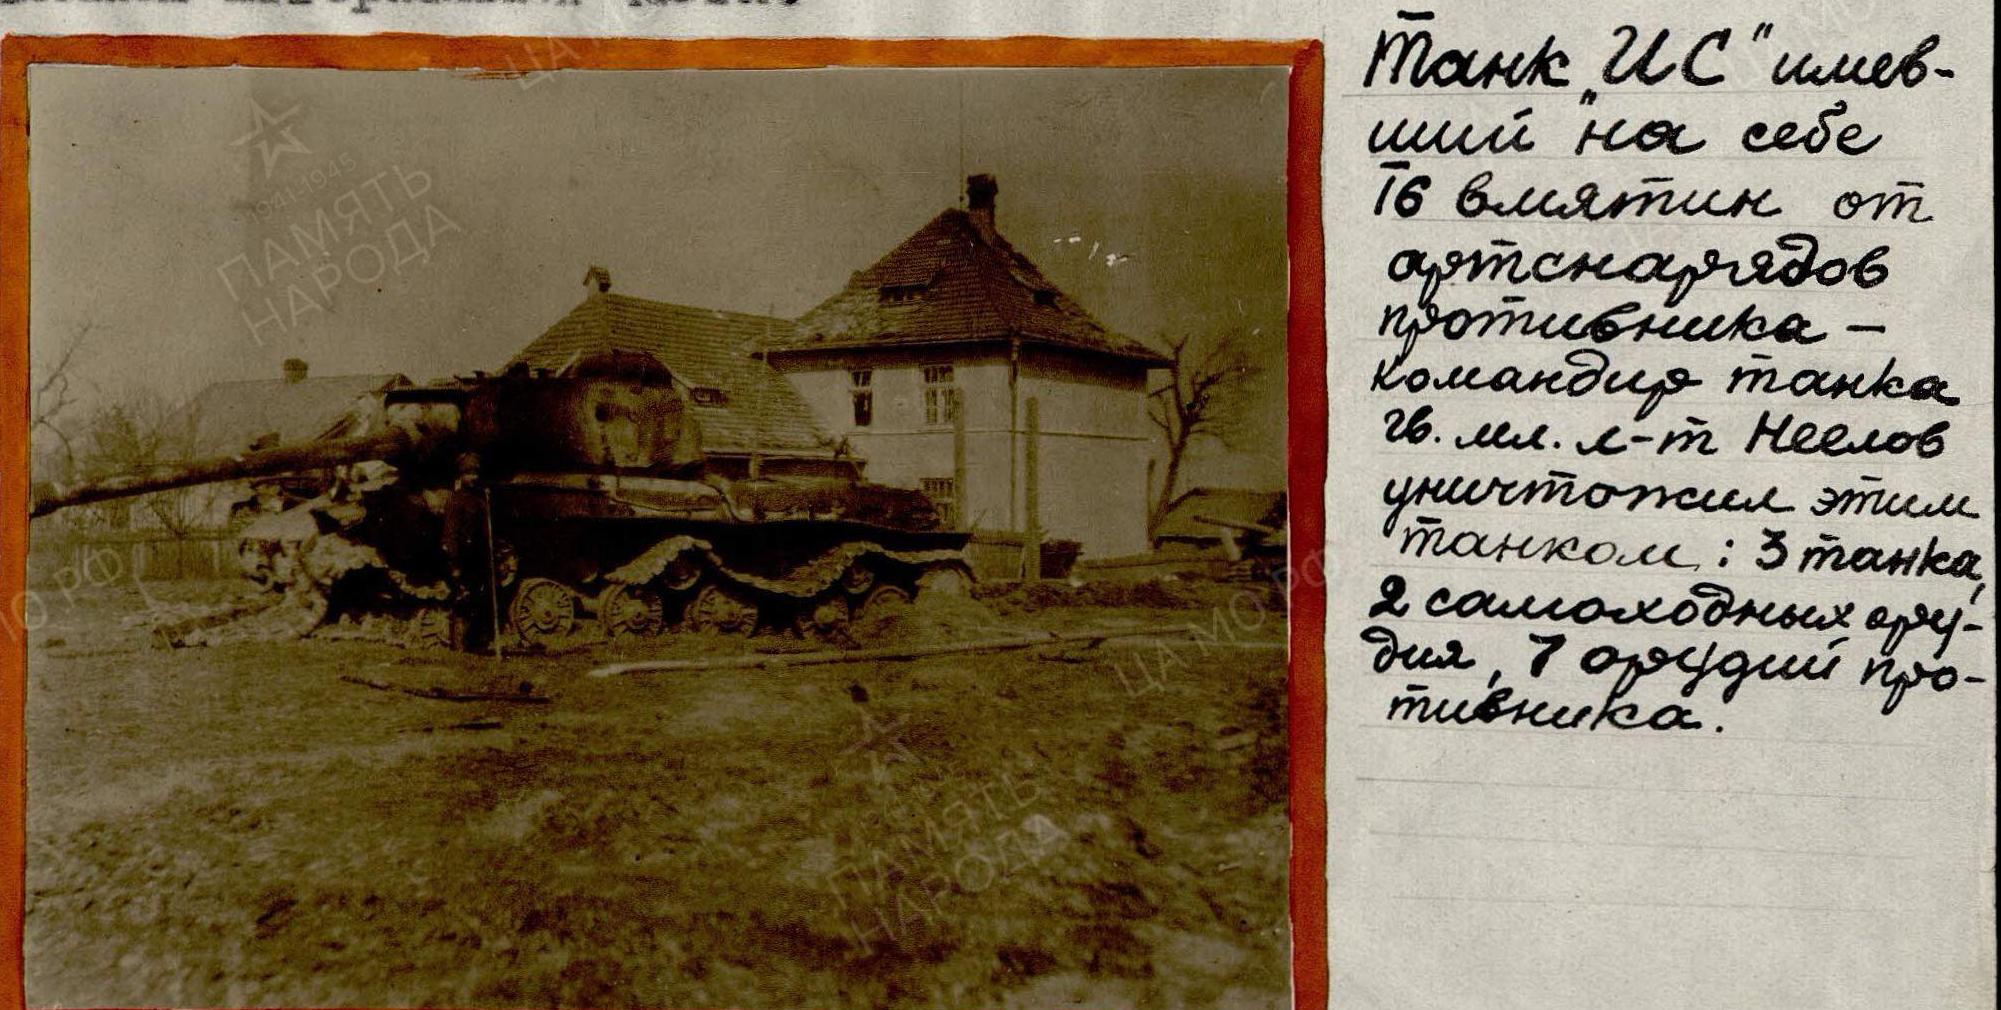 Танк „ИС" имев-
ший на себе
16 вмятин от
артснарядов
противника –
командир танка
гв. мл. л-т Неелов
уничтожил этим
танком: 3 танка,
2 самоходных ору-
дия, 7 орудий про-
тивника.
1941-1945
ПАМЯТЬ
НАРОДА
ЦА МО РФ
ПАМЯТЬ
НАРОДА
ЦА МО РФ